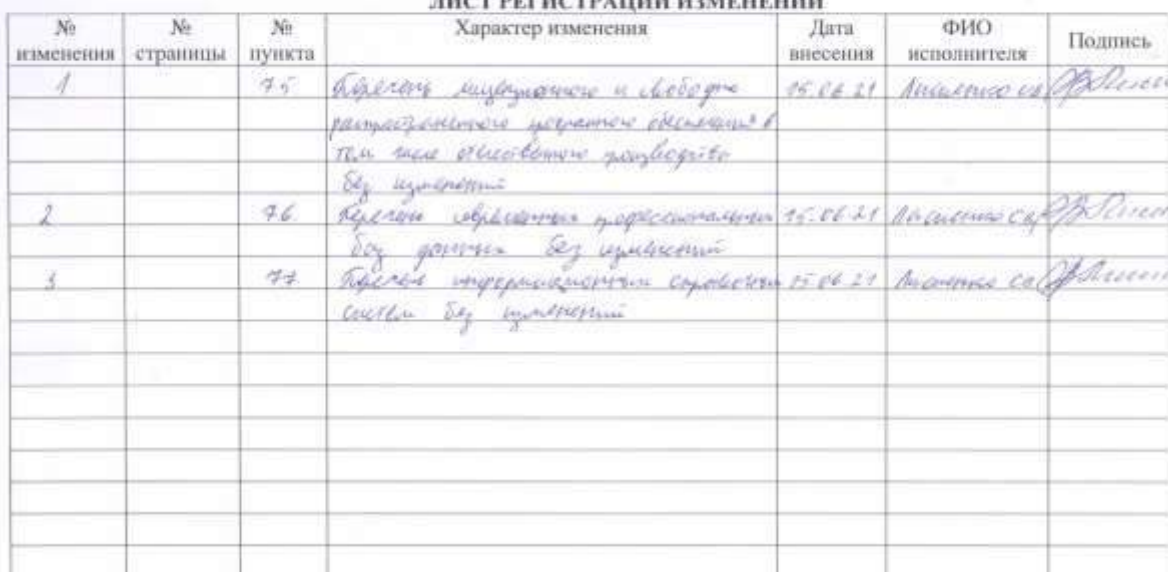 ЛИСТ РЕГИСТРАЦИИ ИЗМЕНЕНИЙ
№ изменения № страницы № пункта Характер изменения Дата внесения ФИО исполнителя Подпись
1 7.5 Перечень лицензионного и свободно 15.06.21
распространенного программного обеспечения в
том числе отечественного производства
без изменений
2 7.6 Перечень современных профессиональных 15.06.21
баз данных без изменений
3 7.7 Перечень информационных справочных 15.06.21
систем без изменений